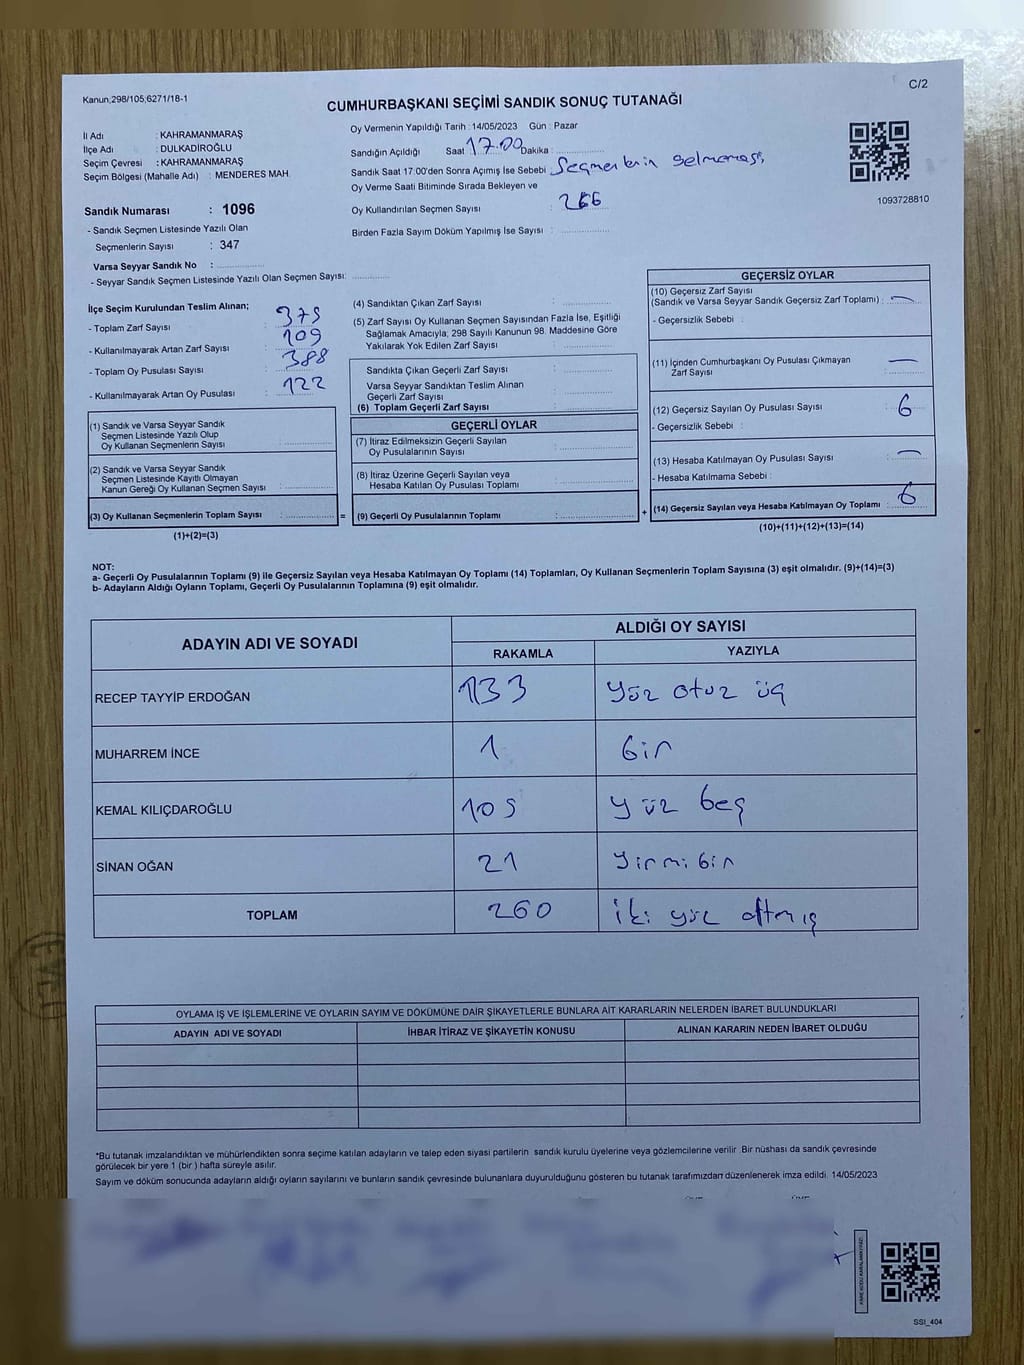 Kanun;298/105;6271/18-1
C/2
CUMHURBAŞKANI SEÇİMİ SANDIK SONUÇ TUTANAĞI
İl Adı : KAHRAMANMARAŞ
İlçe Adı : DULKADİROĞLU
Seçim Çevresi : KAHRAMANMARAŞ
Seçim Bölgesi (Mahalle Adı) : MENDERES MAH.
Sandık Numarası : 1096
- Sandık Seçmen Listesinde Yazılı Olan
Seçmenlerin Sayısı : 347
Varsa Seyyar Sandık No :
- Seyyar Sandık Seçmen Listesinde Yazılı Olan Seçmen Sayısı:
Oy Vermenin Yapıldığı Tarih : 14/05/2023 Gün : Pazar
Sandığın Açıldığı Saat 17.00 Dakika :
Sandık Saat 17:00'den Sonra Açımış İse Sebebi : Seçmenlerin gelmemesi
Oy Verme Saati Bitiminde Sırada Bekleyen ve
Oy Kullandırılan Seçmen Sayısı : 266
Birden Fazla Sayım Döküm Yapılmış İse Sayısı :
1093728810
İlçe Seçim Kurulundan Teslim Alınan;
- Toplam Zarf Sayısı : 375
- Kullanılmayarak Artan Zarf Sayısı : 109
- Toplam Oy Pusulası Sayısı : 388
- Kullanılmayarak Artan Oy Pusulası : 122
(1) Sandık ve Varsa Seyyar Sandık
Seçmen Listesinde Yazılı Olup
Oy Kullanan Seçmenlerin Sayısı :
(2) Sandık ve Varsa Seyyar Sandık
Seçmen Listesinde Kayıtlı Olmayan
Kanun Gereği Oy Kullanan Seçmen Sayısı :
(3) Oy Kullanan Seçmenlerin Toplam Sayısı :
=
(1)+(2)=(3)
(4) Sandıktan Çıkan Zarf Sayısı :
(5) Zarf Sayısı Oy Kullanan Seçmen Sayısından Fazla İse, Eşitliği
Sağlamak Amacıyla; 298 Sayılı Kanunun 98. Maddesine Göre
Yakılarak Yok Edilen Zarf Sayısı :
Sandıkta Çıkan Geçerli Zarf Sayısı :
Varsa Seyyar Sandıktan Teslim Alınan
Geçerli Zarf Sayısı :
(6) Toplam Geçerli Zarf Sayısı :
GEÇERLİ OYLAR
(7) İtiraz Edilmeksizin Geçerli Sayılan
Oy Pusulalarının Sayısı :
(8) İtiraz Üzerine Geçerli Sayılan veya
Hesaba Katılan Oy Pusulası Toplamı :
(9) Geçerli Oy Pusulalarının Toplamı :
+
GEÇERSİZ OYLAR
(10) Geçersiz Zarf Sayısı
(Sandık ve Varsa Seyyar Sandık Geçersiz Zarf Toplamı) : —
- Geçersizlik Sebebi :
(11) İçinden Cumhurbaşkanı Oy Pusulası Çıkmayan
Zarf Sayısı : —
(12) Geçersiz Sayılan Oy Pusulası Sayısı : 6
- Geçersizlik Sebebi :
(13) Hesaba Katılmayan Oy Pusulası Sayısı : —
- Hesaba Katılmama Sebebi :
(14) Geçersiz Sayılan veya Hesaba Katılmayan Oy Toplamı : 6
(10)+(11)+(12)+(13)=(14)
NOT:
a- Geçerli Oy Pusulalarının Toplamı (9) ile Geçersiz Sayılan veya Hesaba Katılmayan Oy Toplamı (14) Toplamları, Oy Kullanan Seçmenlerin Toplam Sayısına (3) eşit olmalıdır. (9)+(14)=(3)
b- Adayların Aldığı Oyların Toplamı, Geçerli Oy Pusulalarının Toplamına (9) eşit olmalıdır.
ADAYIN ADI VE SOYADI ALDIĞI OY SAYISI
RAKAMLA YAZIYLA
RECEP TAYYİP ERDOĞAN 133 yüz otuz üç
MUHARREM İNCE 1 bir
KEMAL KILIÇDAROĞLU 105 yüz beş
SİNAN OĞAN 21 yirmi bir
TOPLAM 260 iki yüz altmış
OYLAMA İŞ VE İŞLEMLERİNE VE OYLARIN SAYIM VE DÖKÜMÜNE DAİR ŞİKAYETLERLE BUNLARA AİT KARARLARIN NELERDEN İBARET BULUNDUKLARI
ADAYIN ADI VE SOYADI İHBAR İTİRAZ VE ŞİKAYETİN KONUSU ALINAN KARARIN NEDEN İBARET OLDUĞU
*Bu tutanak imzalandıktan ve mühürlendikten sonra seçime katılan adayların ve talep eden siyasi partilerin sandık kurulu üyelerine veya gözlemcilerine verilir. Bir nüshası da sandık çevresinde
görülecek bir yere 1 (bir ) hafta süreyle asılır.
Sayım ve döküm sonucunda adayların aldığı oyların sayılarını ve bunların sandık çevresinde bulunanlara duyurulduğunu gösteren bu tutanak tarafımızdan düzenlenerek imza edildi. 14/05/2023
SSİ_404